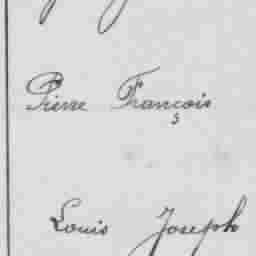 Pierre François
Louis Joseph